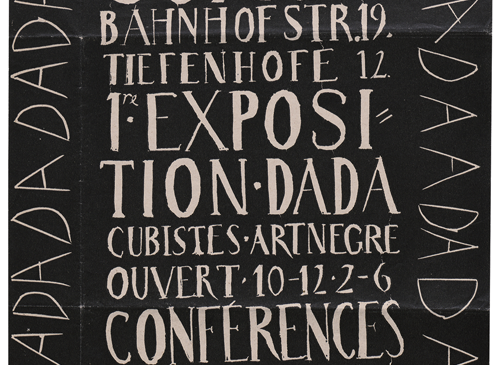 BAHNHOFSTR.19.
TIEFENHOFE 12.
1re·EXPOSI=
TION·DADA
CUBISTES·ARTNEGRE
OUVERT·10-12·2-6
CONFÉRENCES